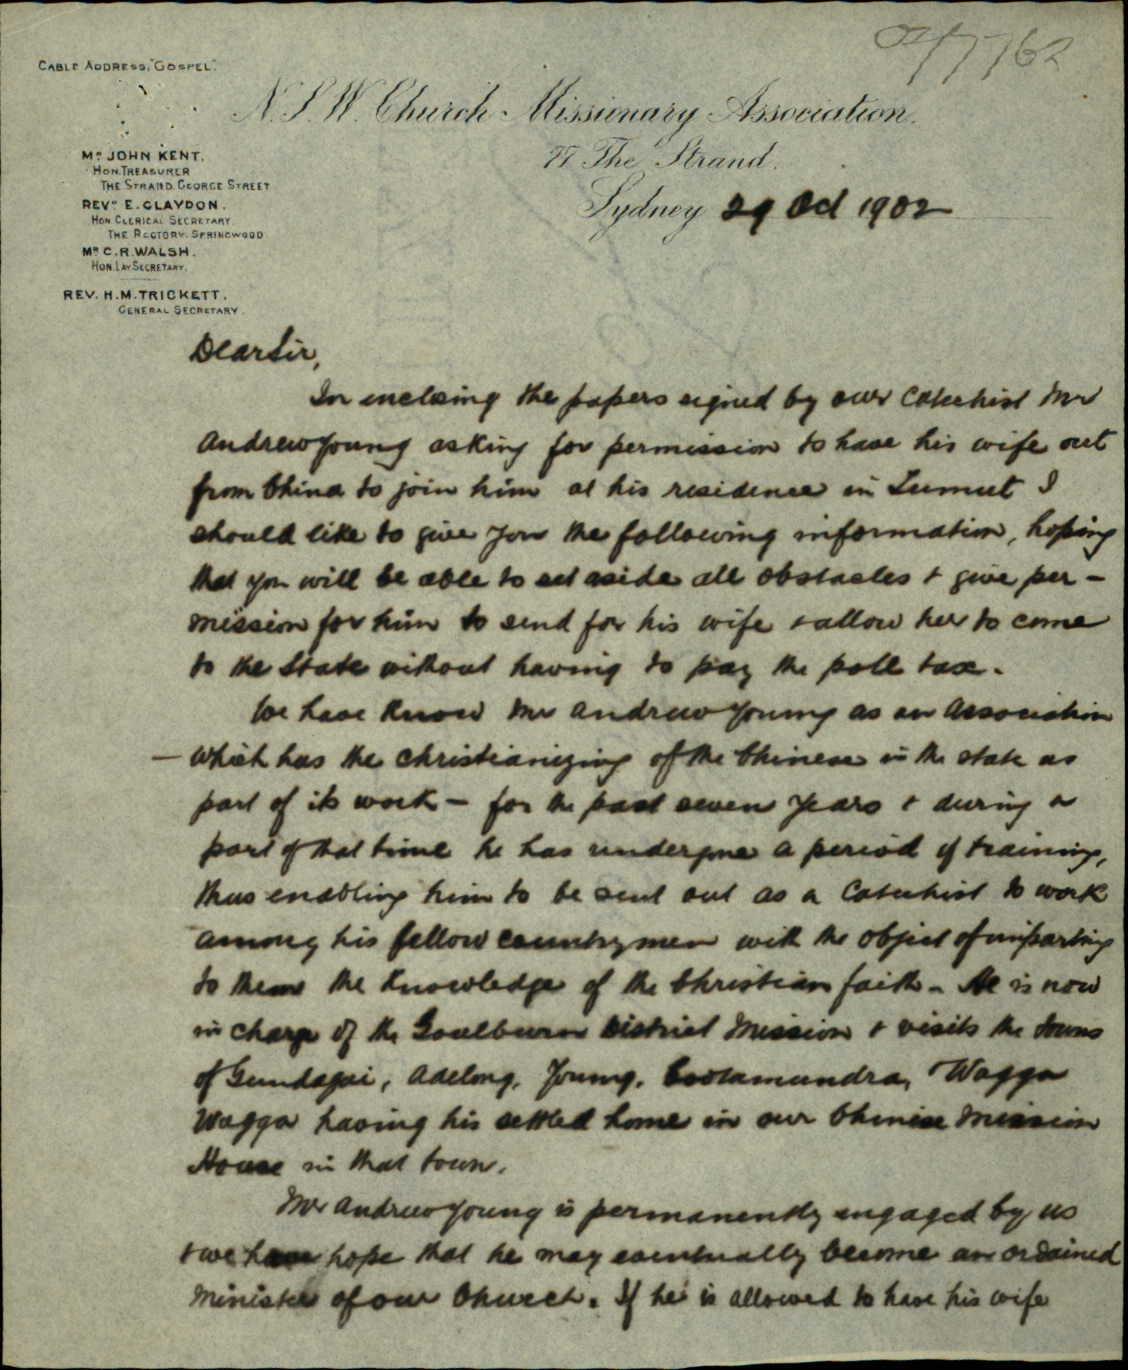 02/7762
CABLE ADDRESS, "GOSPEL".
N.S.W. Church Missionary Association.
77 The Strand.
Sydney 29 Oct 1902
MR JOHN KENT.
HON. TREASURER
THE STRAND. GEORGE STREET
REVD E. CLAYDON.
HON CLERICAL SECRETARY
THE RECTORY. SPRINGWOOD
MR C. R. WALSH.
HON. LAY SECRETARY.
REV. H. M. TRICKETT.
GENERAL SECRETARY.
Dear Sir,
In inclosing the papers signed by our Catechist Mr
Andrew Young asking for permission to have his wife out
from China to join him at his residence in I
should like to give you the following information, hoping
that you will be able to set aside all obstacles & give per-
mission for him to send for his wife & allow her to come
to the State without having to pay the poll tax.
We have know Mr Andrew Young as an Association
- which has the christianizing of the Chinese in the state as
part of its work - for the past seven years & during a
part of that time he has undergone a period of training,
thus enabling him to be sent out as a Catechist to work
among his fellow countrymen with the object of imparting
to them the knowledge of the Christian faith. He is now
in charge of the Goulburn District Mission & visits the towns
of Gundagai, Adelong, Young, Cootamundra, Wagga
Wagga having his settled home in our Chinese Mission
House in that town.
Mr Andrew Young is permanently engaged by us
& we have hope that he may eventually become an ordained
minister of our Church. If he is allowed to have his wife